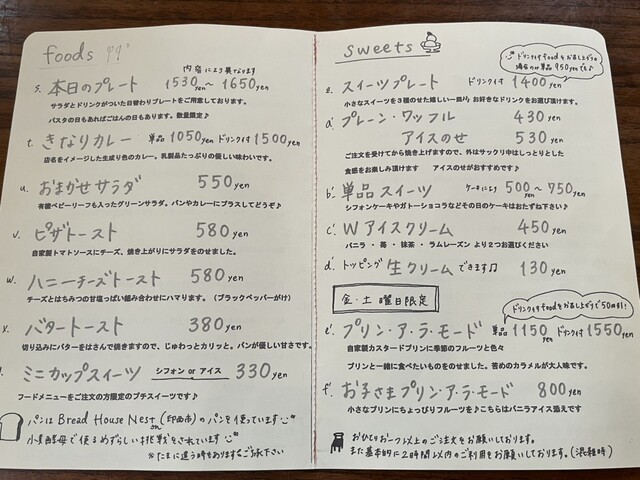 foods
内容により異なります
s. 本日のプレート 1530yen～1650yen
サラダとドリンクがついた日替わりプレートをご用意しております。
パスタの日もあればごはんの日もあります。数量限定♪
t. きなりカレー 単品 1050yen ドリンク付 1500yen
店名をイメージした生成り色のカレー。乳製品たっぷりの優しい味わいです。
u. おまかせサラダ 550yen
有機ベビーリーフも入ったグリーンサラダ。パンやカレーにプラスしてどうぞ♪
v. ピザトースト 580yen
自家製トマトソースにチーズ、焼き上がりにサラダをのせました。
w. ハニーチーズトースト 580yen
チーズとはちみつの甘塩っぱい組み合わせにハマります。（ブラックペッパーがけ）
x. バタートースト 380yen
切り込みにバターをはさんで焼きますので、じゅわっとカリッと。パンが優しい甘さです。
ミニカップスイーツ シフォン or アイス 330yen
フードメニューをご注文の方限定のプチスイーツです♪
パンは Bread House Nest (印西市) のパンを使っています
で使るめずらしい挑戦をされています
※たまに違う時もあります ご了承下さい
sweets
ドリンク付 foodをお召し上がりの
場合のみ単品950yenでも♪
z. スイーツプレート ドリンク付 1400yen
小さなスイーツを3種のせた嬉しい一皿♪ お好きなドリンクをお選び頂けます。
a' プレーン・ワッフル 430yen
アイスのせ 530yen
ご注文を受けてから焼き上げますので、外はサックリ中はしっとりとした
食感をお楽しみ頂けます アイスのせがおすすめです♪
b' 単品スイーツ ケーキにより 500yen～750yen
シフォンケーキやガトーショコラなどその日のケーキはおたずね下さい♪
c' Wアイスクリーム 450yen
バニラ・苺・抹茶・ラムレーズン より2つお選びください
d' トッピング 生クリームできます♫ 130yen
金・土曜日限定
ドリンク付foodをお召し上がりで50円引!
e' プリン・ア・ラ・モード 単品 1150yen ドリンク付 1550yen
自家製カスタードプリンに季節のフルーツと色々
プリンと一緒に食べたいものをのせました。苦めのカラメルが大人味です。
f' お子さまプリン・ア・ラ・モード 800yen
小さなプリンにちょっぴりフルーツを♪こちらはバニラアイス添えです
おひとりお一つ以上のご注文をお願いしております。
また基本的に2時間以内のご利用をお願いしております。(混雑時)